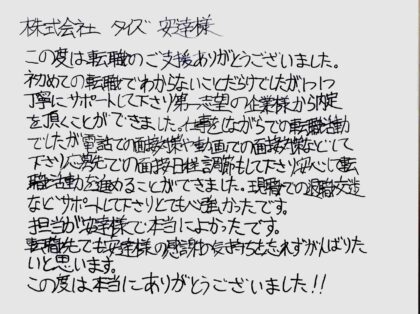 株式会社 タイズ 安達様
この度は転職のご支援ありがとうございました。
初めての転職でわからないことだらけでしたが1つ1つ
丁寧にサポートして下さり第一志望の企業様から内定
を頂くことができました。仕事をしながらでの転職活動
でしたが電話での面接対策や動画での面接対策などして
下さり応募先での面接日程調節もして下さり安心して転
職活動を進めることができました。現職での退職交渉
などサポートして下さりとても心強かったです。
担当が安達様で本当によかったです。
転職先でも安達様の感謝の気持ちを忘れずがんばりた
いと思います。
この度は本当にありがとうございました!!